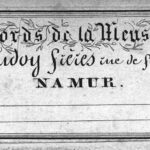 ords de la Meus
udoy frères rue de
NAMUR.